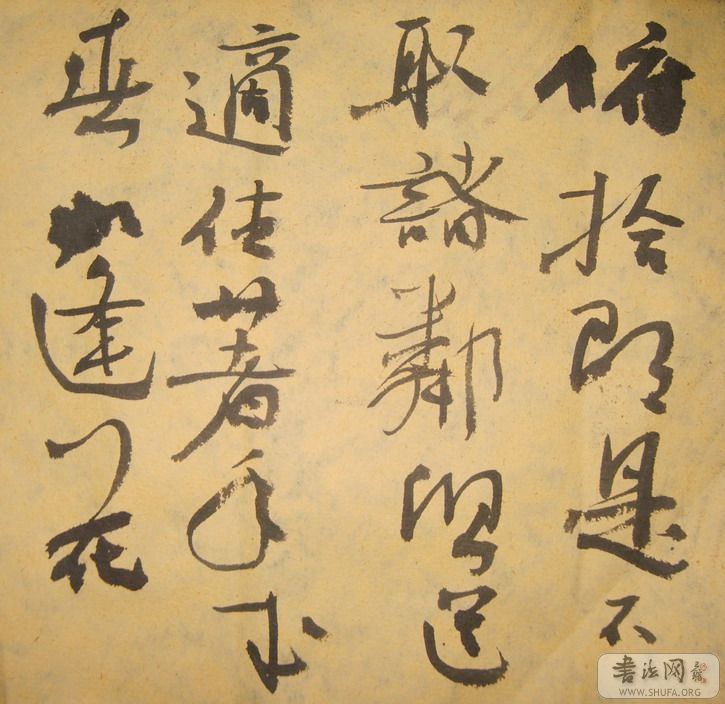 俯拾即是不
取諸鄰俱道
適往著手成
春如逢花
書法网
WWW.SHUFA.ORG